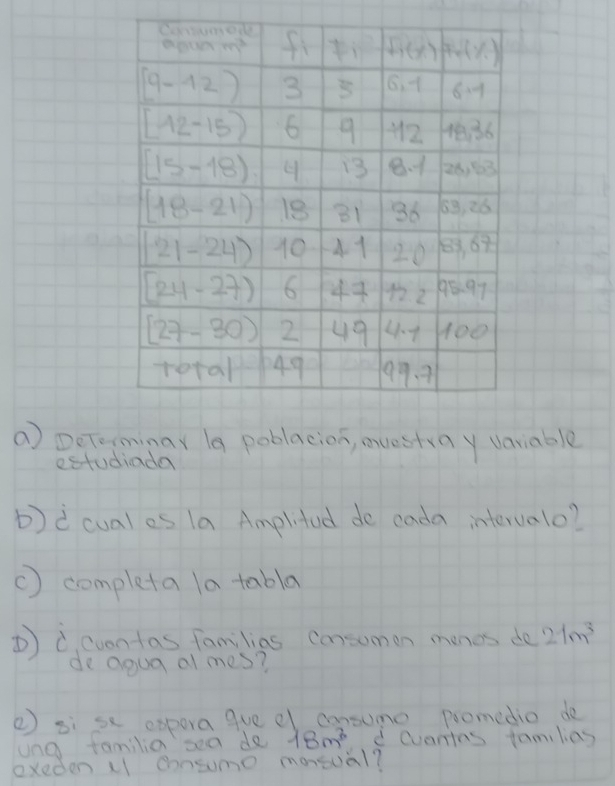 Consumo de fi Fi Fr(%) Fr(%)
agua m³
[9-12) 3 3 6,1 6.1
[12-15) 6 9 12 18,36
[15-18) 4 13 8.1 26,53
[18-21) 18 31 36 63,26
[21-24) 10 41 20 83,67
[24-27) 6 47 12 2 95.91
[27-30) 2 49 4.1 100
total 49 99.7
a) Determinar la poblacion, muestra y variable
estudiada
b) ¿ cual es la Amplitud de cada intervalo?
c) completa la tabla
D) ¿ cuantas familias consumen menos de 21m³
de agua al mes?
e) si se espera que el consumo promedio de
una familia sea de 18m³ ¿ cuantas familias
exeden el consumo mensual?